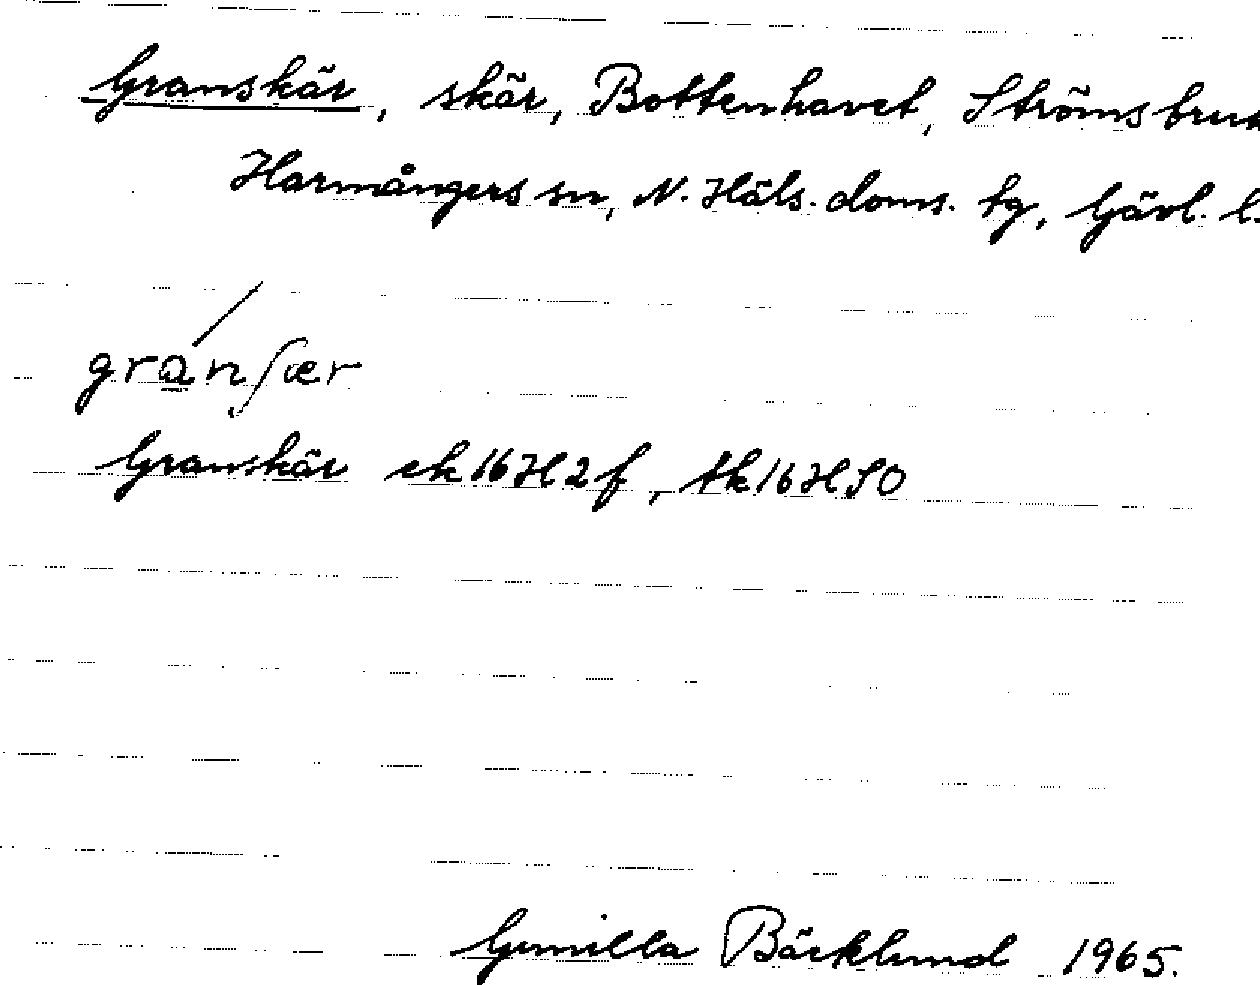 Granskär, skär, Bottenhavet, Strömsbruk
Harmångers sn, N. Häls. doms. tg, Gävl. l.
gránʃær
Granskär ek16H2f, tk16HSO
Gunilla Bäcklund 1965.